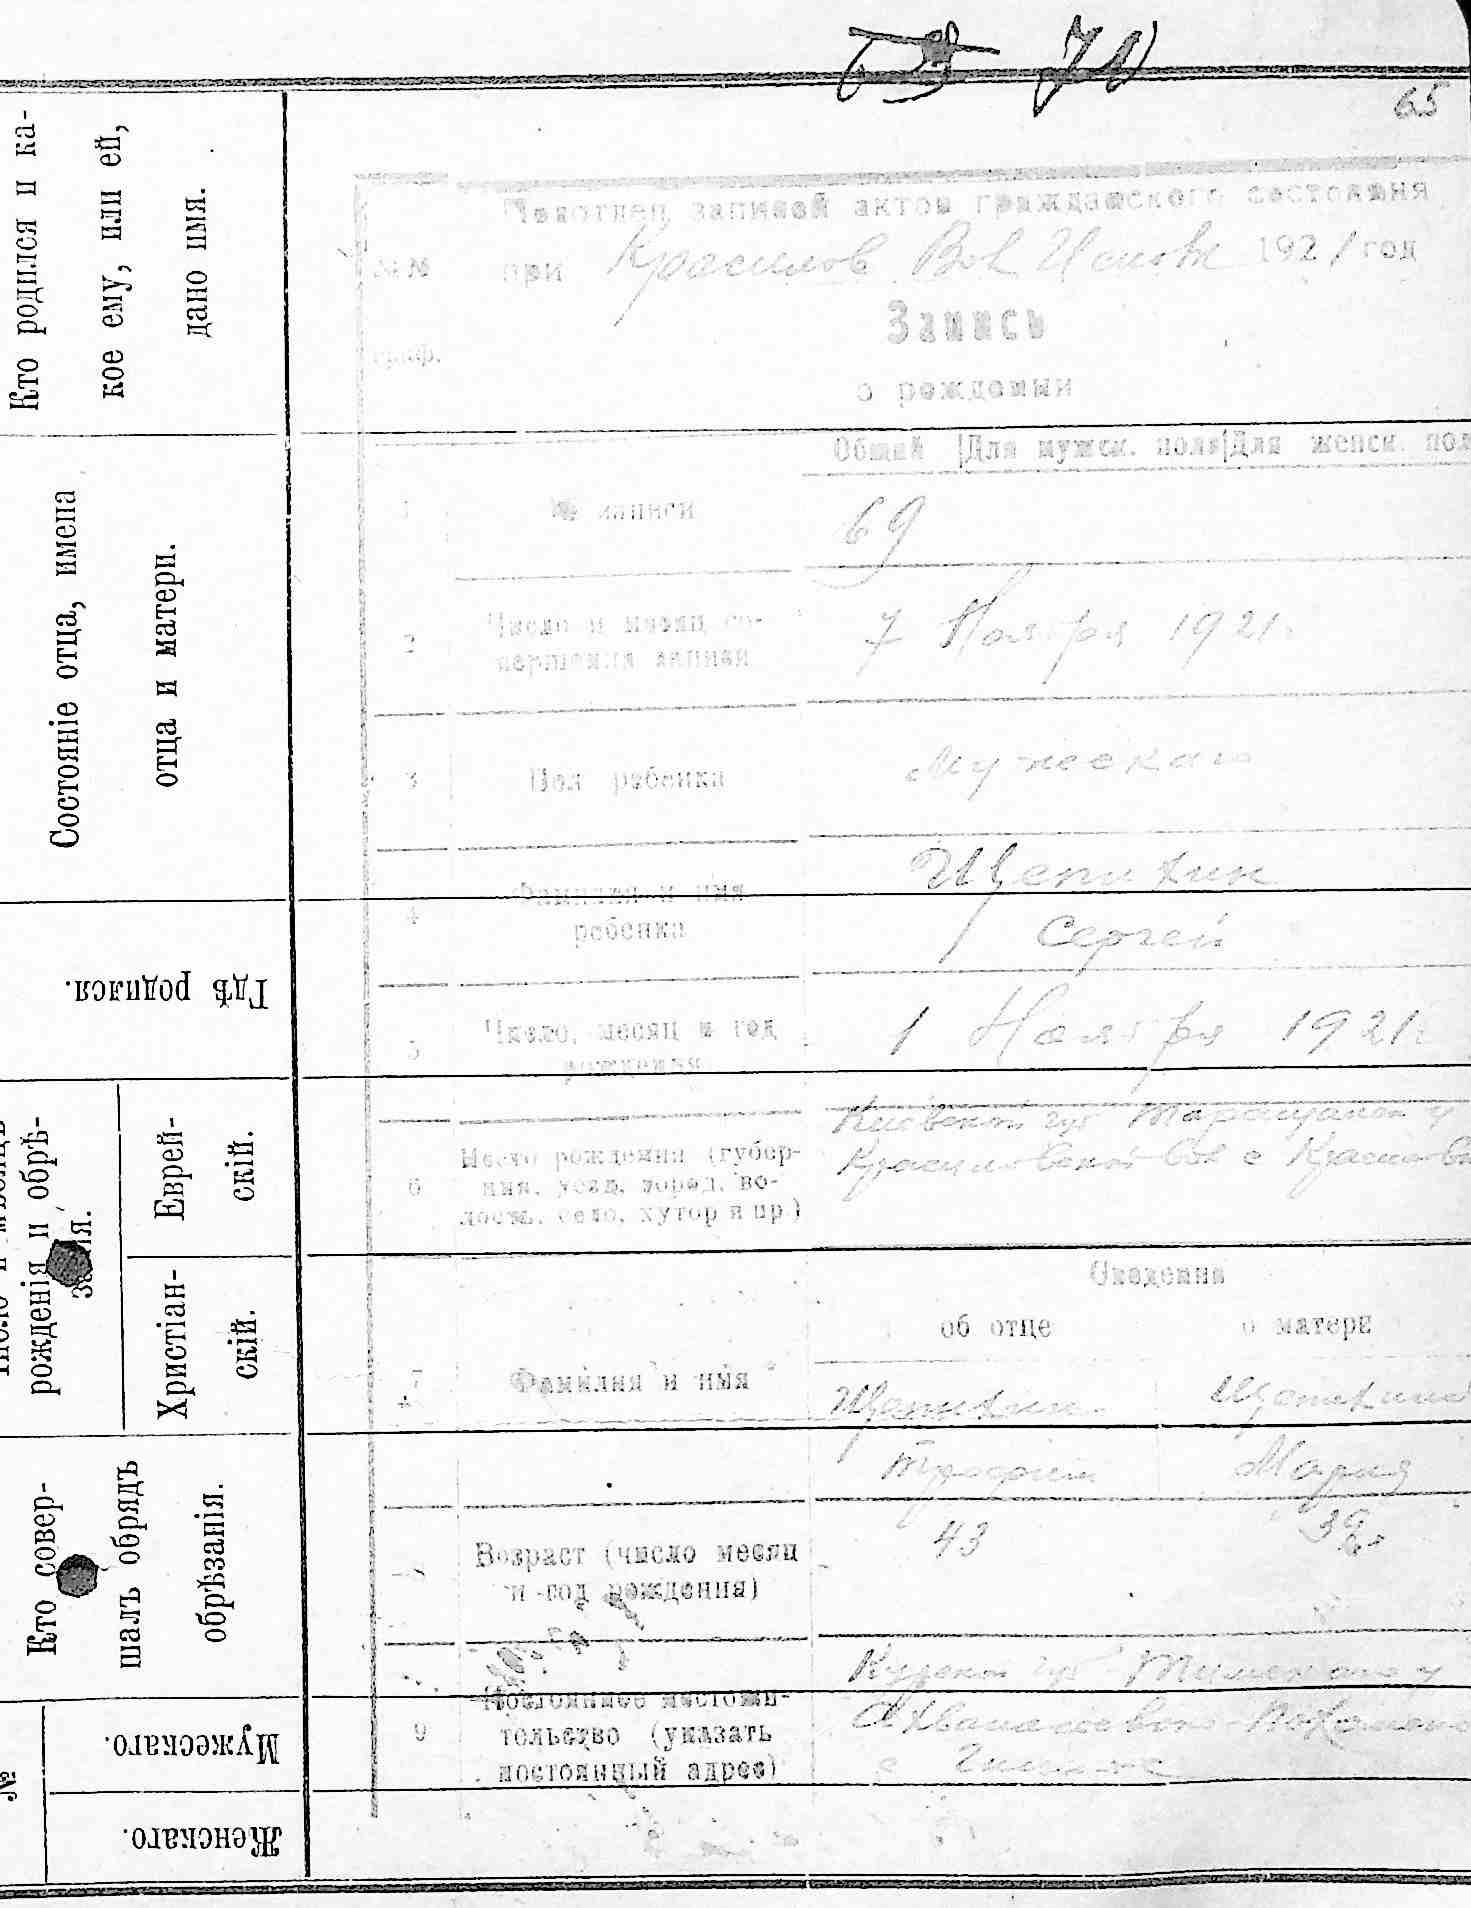 70
65
Кто родился и ка-
кое ему, или ей,
дано имя.
Состояніе отца, имена
отца и матери.
Гдѣ родился.
рожденія и обрѣ-
Еврей-
скій.
Христіан-
скій.
Кто совер-
шалъ обрядъ
обрѣзанія.
№
Мужескаго.
Женскаго.
записей актов гражданского состояния
№№ при Красилов Вол 1921 год
граф.
Запись
о рождении
Общий Для мужск. пола Для женск. пол
1 № записи 69
2 Число и месяц со-
вершения записи
7 Ноября 1921г.
3 Пол ребенка Мужескаго
4 Фамилия и имя
ребенка
Щепихин
Сергей
5 Число, месяц и год
рождения
1 Ноября 1921г
6 Место рождения (губер-
ния, уезд, город, во-
лость, село, хутор и пр.)
Киевской губ Таращанск у
Красиловской Вол с
Сведения
об отце о матери
7 Фамилия и имя
Щепихин Щепихина
Трофим Мария
8 Возраст (число месяц
и год рождения)
43 39
9 Постоянное местожи-
тельство (указать
постоянный адрес)
Курской губ Тимскаго у
с